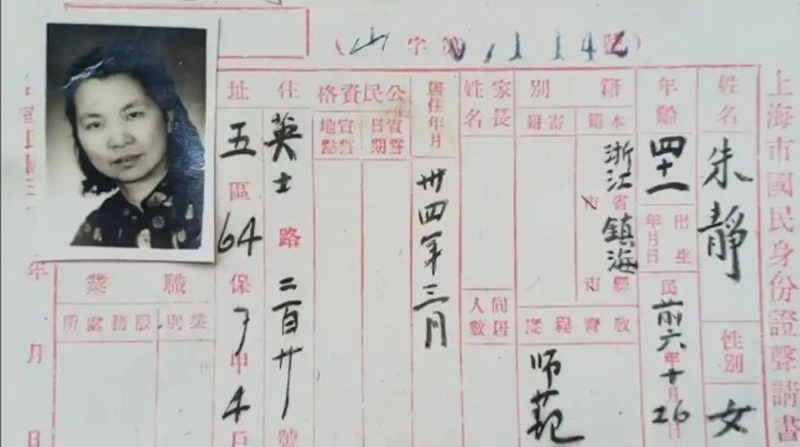 上海市國民身份證聲請書
姓名 朱靜
性別 女
年齡 四十一
出生年月日 民前六年十月26日
籍別
本籍 浙江省鎮海縣市
寄籍
教育程度 師范
家長姓名
同居人數
居住年月 卅四年三月
公民資格
宣誓日期
宣誓地點
住址 英士路二百廿號
五區64保甲4戶
職業
業別
服務處所
(山字第
年月日